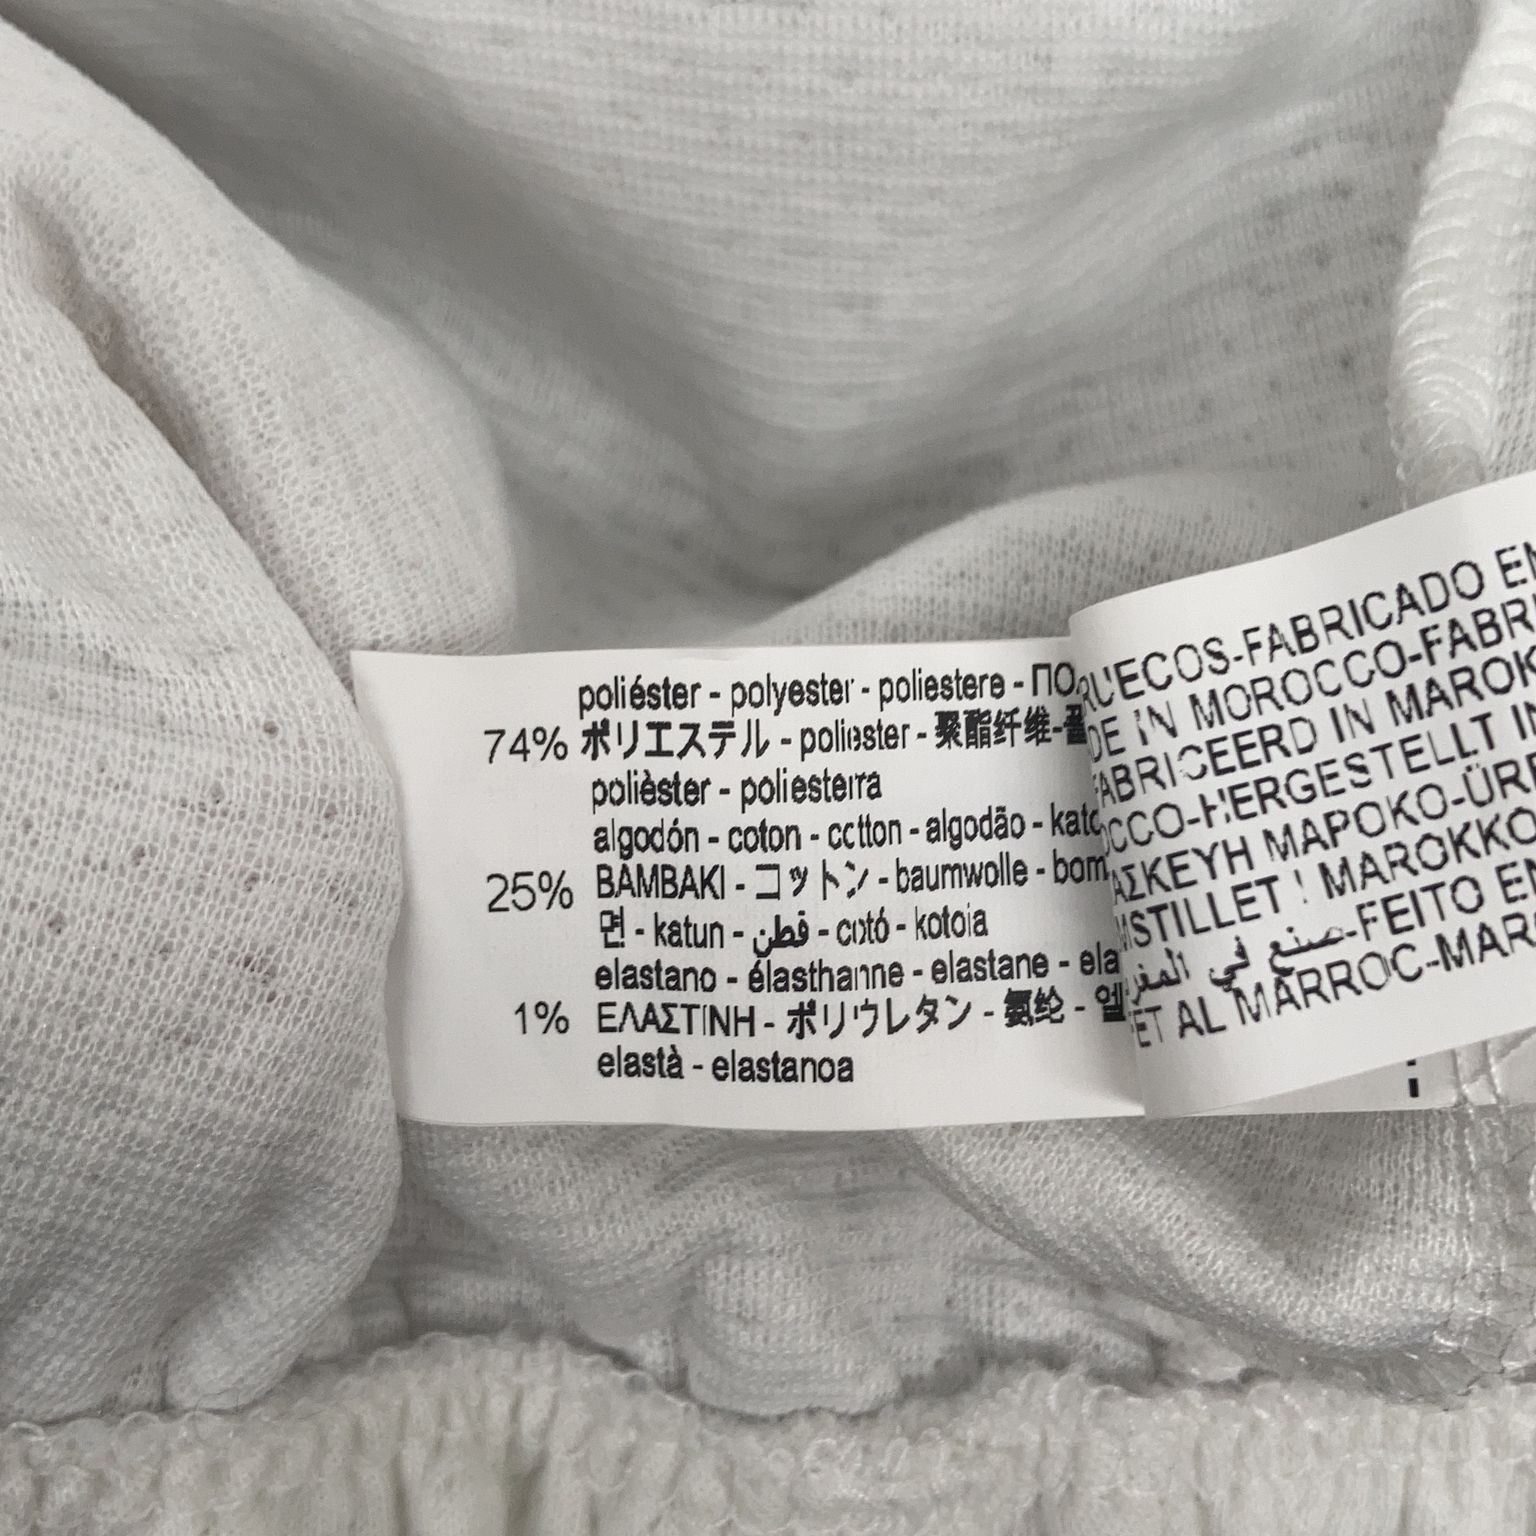 poliéster - polyester - poliestere - ΠΟ
74% ポリエステル - poliester - 聚酯纤维-폴
polièster - poliesterra
algodón - coton - cotton - algodão - kato
25% BAMBAKI - コットン - baumwolle - bom
면 - katun - قطن - cotó - kotoia
elastano - élasthanne - elastane - ela
1% ΕΛΑΣΤΙΝΗ - ポリウレタン - 氨纶 - 엘
elastà - elastanoa
RUECOS-FABRICADO EN
DE IN MOROCCO-FABRI
FABRICEERD IN MAROK
OCCO-HERGESTELLT IN
ΑΣΚΕΥΗ ΜΑΡΟΚΟ-ÜRE
MSTILLET I MAROKKO
صنع في المغر-FEITO EN
ET AL MARROC-MAR